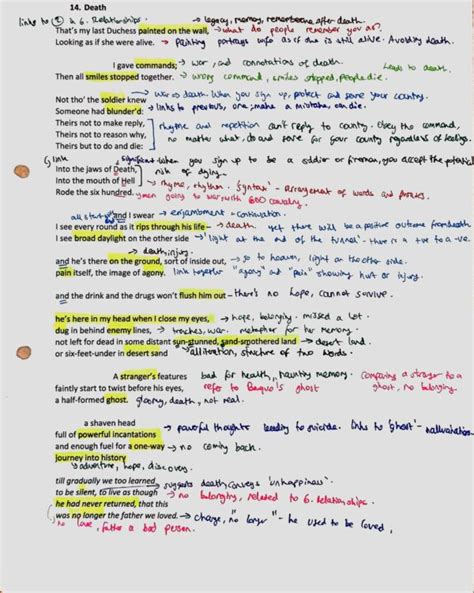 14. Death
links to ① & 6. Relationships. → legacy, memory, remembrance after death.
That's my last Duchess painted on the wall, → what do people remember you as?
Looking as if she were alive. → Painting portrays info as if she is still alive. Avoiding death.
I gave commands; → war, and connotations of death. Leads to death.
Then all smiles stopped together. → wrong command, smiles stopped, people die.
Not tho' the soldier knew → war → death. When you sign up, protect and serve your country.
Someone had blunder'd: → links to previous, one, make a mistake, can die.
Theirs not to make reply,
Theirs not to reason why,
Theirs but to do and die:
rhyme and repetition can't reply to county. Obey the command,
no matter what, do and serve for your county regardless of feelings.
link
significant When you sign up to be a soldier or fireman, you accept the potential
Into the jaws of Death, risk of dying.
Into the mouth of Hell → rhyme, rhythm. 'Syntax' - arrangement of words and phrases.
Rode the six hundred. men going to war with 600 cavalry
all start and I swear → enjambment - continuation
I see every round as it rips through his life – → death yet there will be a positive outcome from death
I see broad daylight on the other side → 'light at the end of the tunnel' - there is a +ve to a -ve.
→ death, injury.
and he's there on the ground, sort of inside out, → go to heaven, light on the other side.
pain itself, the image of agony. link together "agony" and "pain" showing hurt or injury.
and the drink and the drugs won't flush him out – there's no hope, cannot survive.
he's here in my head when I close my eyes, → hope, belonging, missed a lot.
dug in behind enemy lines, → trenches, war. metaphor for her memory.
not left for dead in some distant sun-stunned, sand-smothered land → desert land.
or six-feet-under in desert sand → alliteration, structure of two words.
A stranger's features bad for health, haunting memory. comparing a stranger to a
faintly start to twist before his eyes, refer to Banquo's ghost ghost, no belonging.
a half-formed ghost. gloomy, death, not real.
a shaven head
full of powerful incantations → powerful thoughts leading to suicide. links to 'ghost' - hallucination
and enough fuel for a one-way → no coming back.
journey into history
→ adventure, hope, discovery.
till gradually we too learned → suggests death, conveys 'unhappiness'.
to be silent, to live as though → no belonging, related to 6. Relationships.
he had never returned, that this
was no longer the father we loved. → change, "no longer" - he used to be loved,
no love, father a bad person.